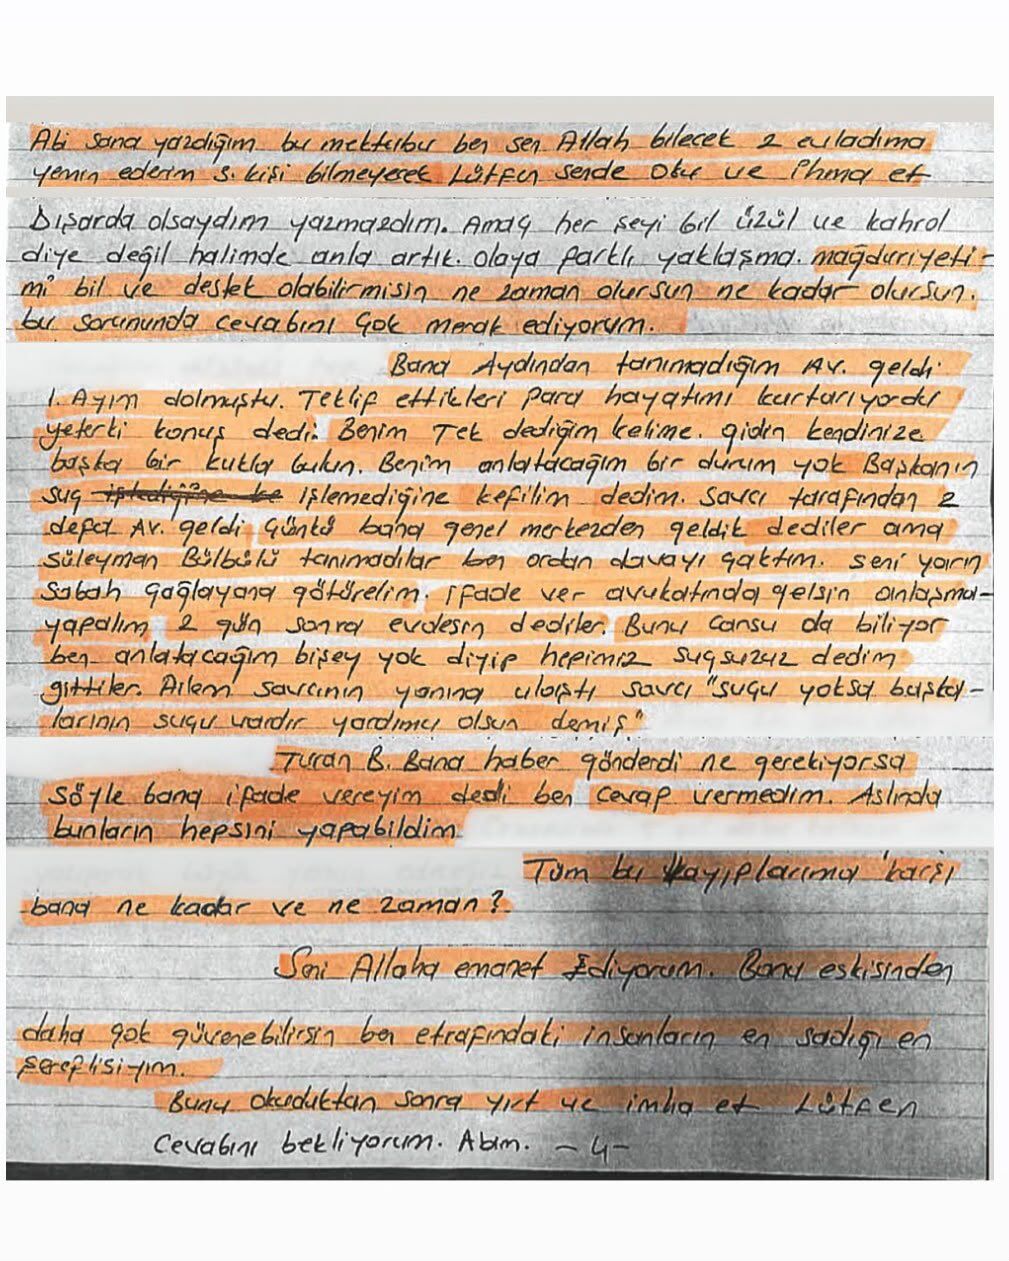 Abi sana yazdığım bu mektubu ben sen Allah bilecek 2 evladıma
yemin ederim 3. kişi bilmeyecek Lütfen sende oku ve İhma et
Dışarda olsaydım yazmazdım. Amaç her şeyi bil üzül ve kahrol
diye değil halimde anla artık. olaya farklı yaklaşma. mağduriyeti-
mi bil ve destek olabilirmisin ne zaman olursun ne kadar olursun.
bu sorununda cevabını çok merak ediyorum.
Bana Aydından tanımadığım Av. geldi
1. Ayım dolmuştu. Teklif ettikleri para hayatımı kurtarıyordu
yeterki konuş dedi. Benim Tek dediğim kelime. gidin kendinize
başka bir kukla bulun. Benim anlatacağım bir durum yok Başkanın
suç işlediğine işlemediğine kefilim dedim. Savcı tarafından 2
defa Av. geldi Çünkü bana genel merkezden geldik dediler ama
Süleyman Bülbülü tanımadılar ben ordan davayı çaktım. seni yarın
Sabah Çağlayana götürelim. ifade ver avukatında gelsin anlaşma-
yapalım 2 gün sonra evdesin dediler. Bunu Cansu da biliyor
ben anlatacağım bişey yok diyip hepimiz suçsuzuz dedim
gittiler. Ailem savcının yanına ulaştı savcı "suçu yoksa başka-
larının suçu vardır yardımcı olsun demiş"
Turan B. Bana haber gönderdi ne gerekiyorsa
söyle bana ifade vereyim dedi ben cevap vermedim. Aslında
bunların hepsini yapabildim.
Tüm bu kayıplarıma karşı
bana ne kadar ve ne zaman?
Seni Allaha emanet Ediyorum. Bana eskisinden
daha çok güvenebilirsin ben etrafındaki insanların en sadığı en
şereflisiyim.
Bunu okuduktan sonra yırt ve imha et Lütfen
Cevabını bekliyorum. Abim. -4-